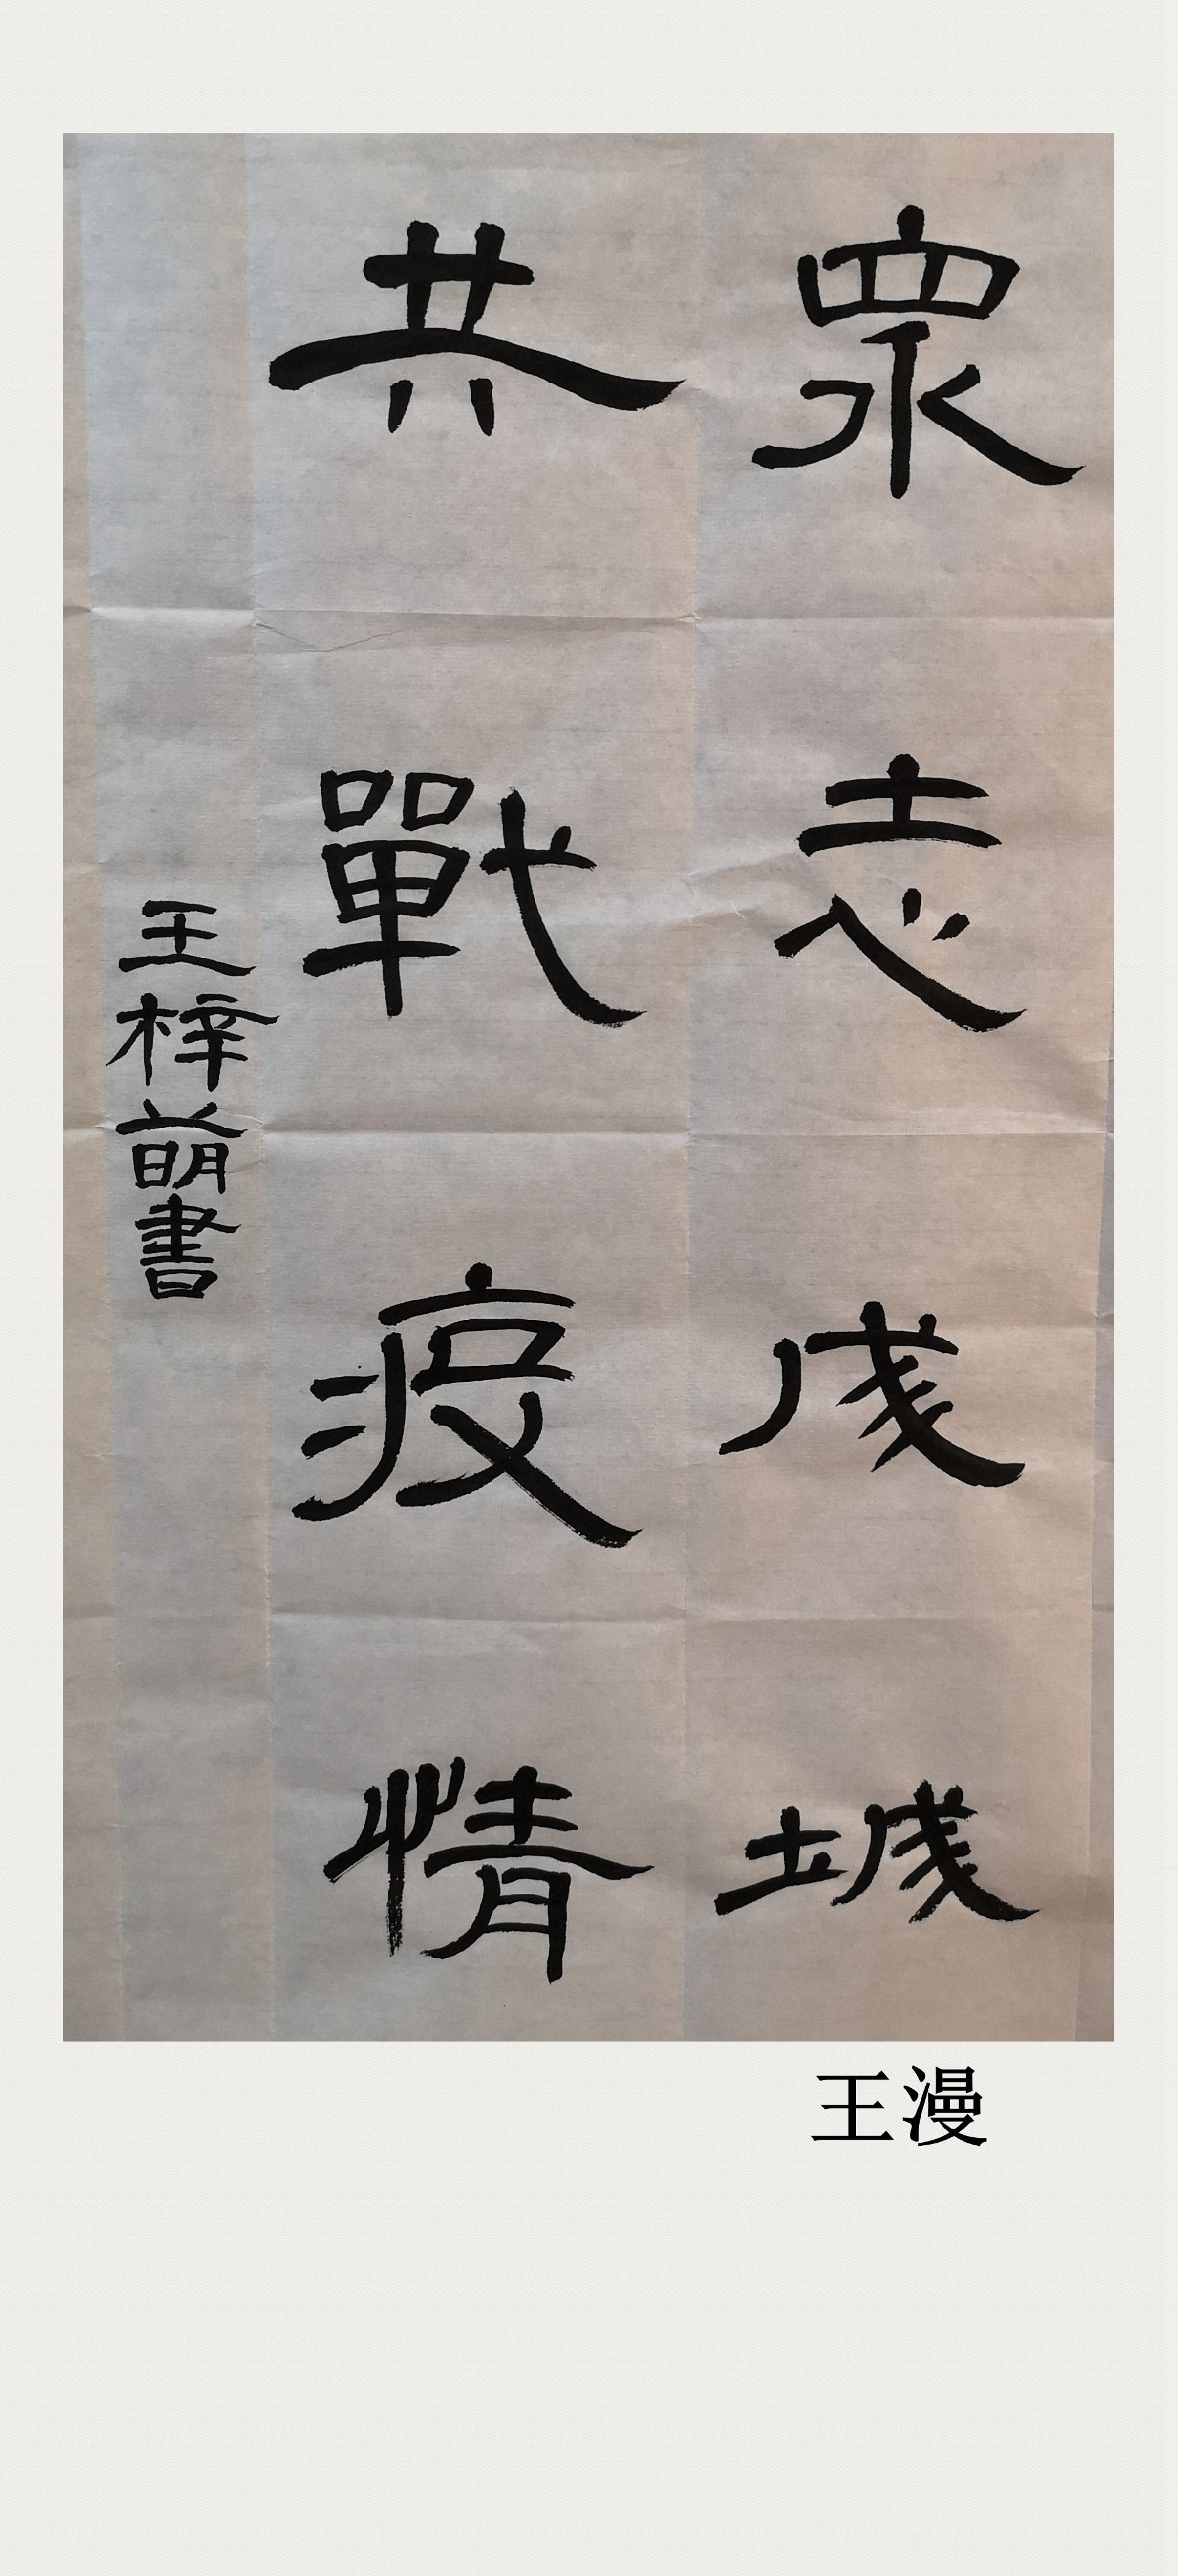 眾志成城
共戰疫情
王梓萌書
王漫